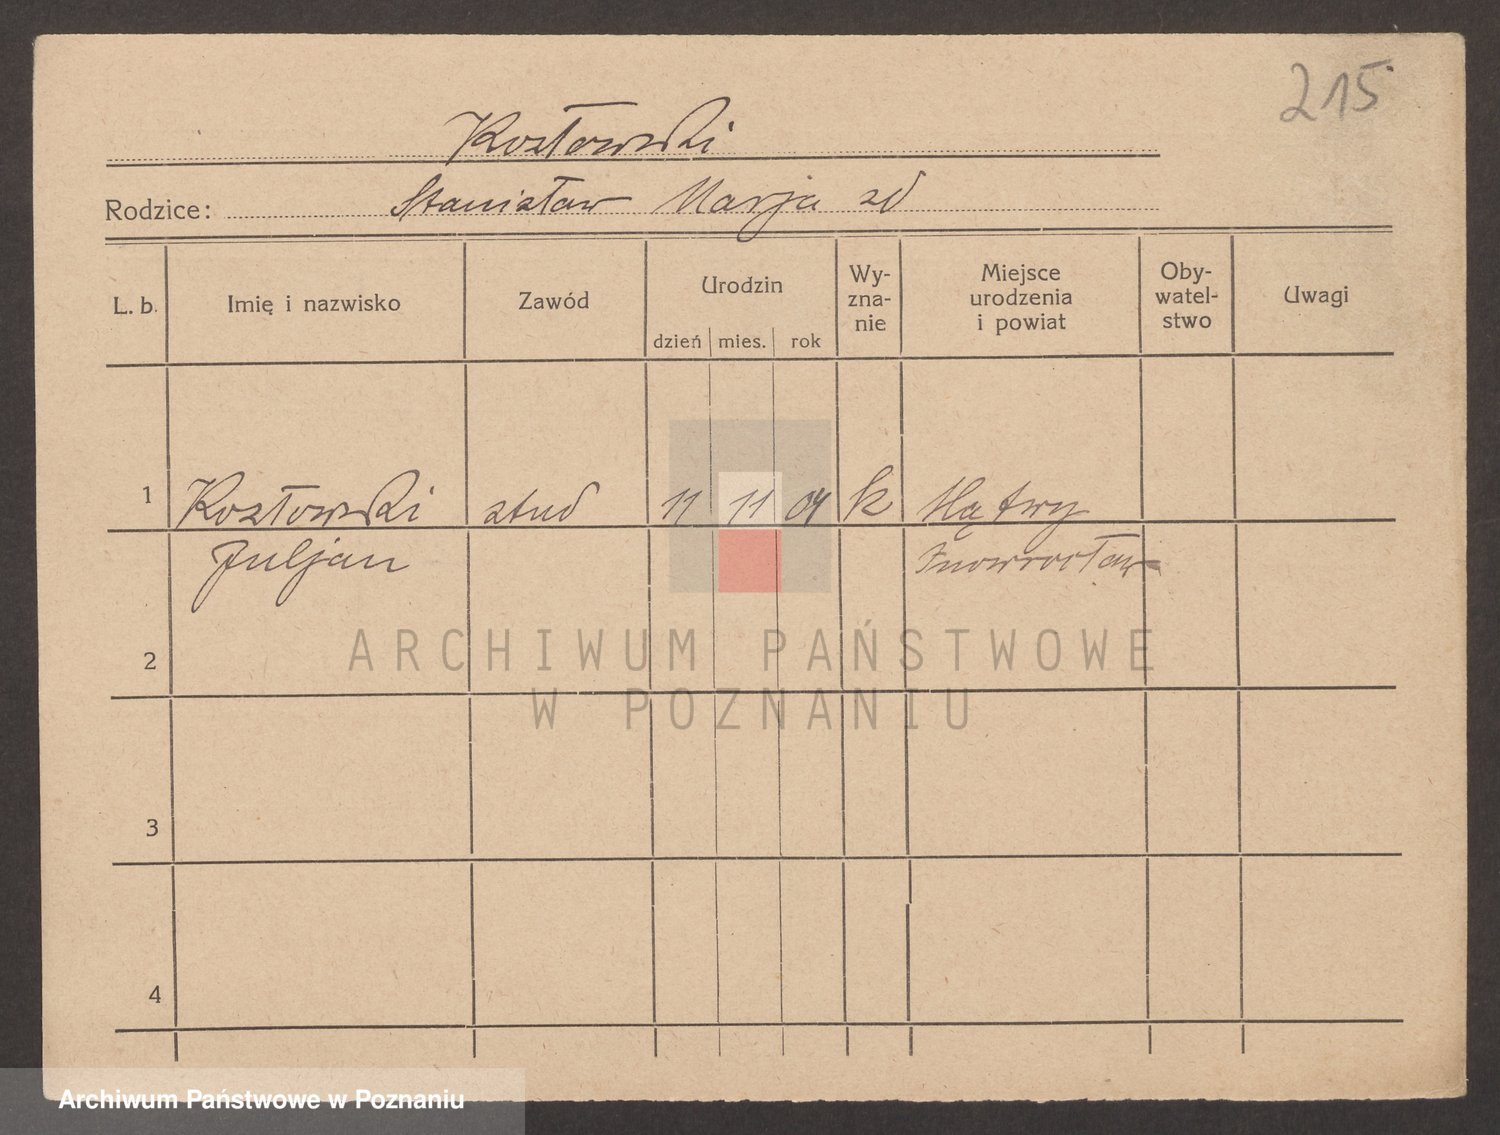 215
Kozłowski
Rodzice: Stanisław Marja zd
L. b. Imię i nazwisko Zawód Urodzin dzień mies. rok Wy-zna-nie Miejsce urodzenia i powiat Oby-watel-stwo Uwagi
1 Kozłowski stud 11 11 04 k Mątwy
Juljan Inowrocław
2
3
4
ARCHIWUM PAŃSTWOWE
W POZNANIU
Archiwum Państwowe w Poznaniu